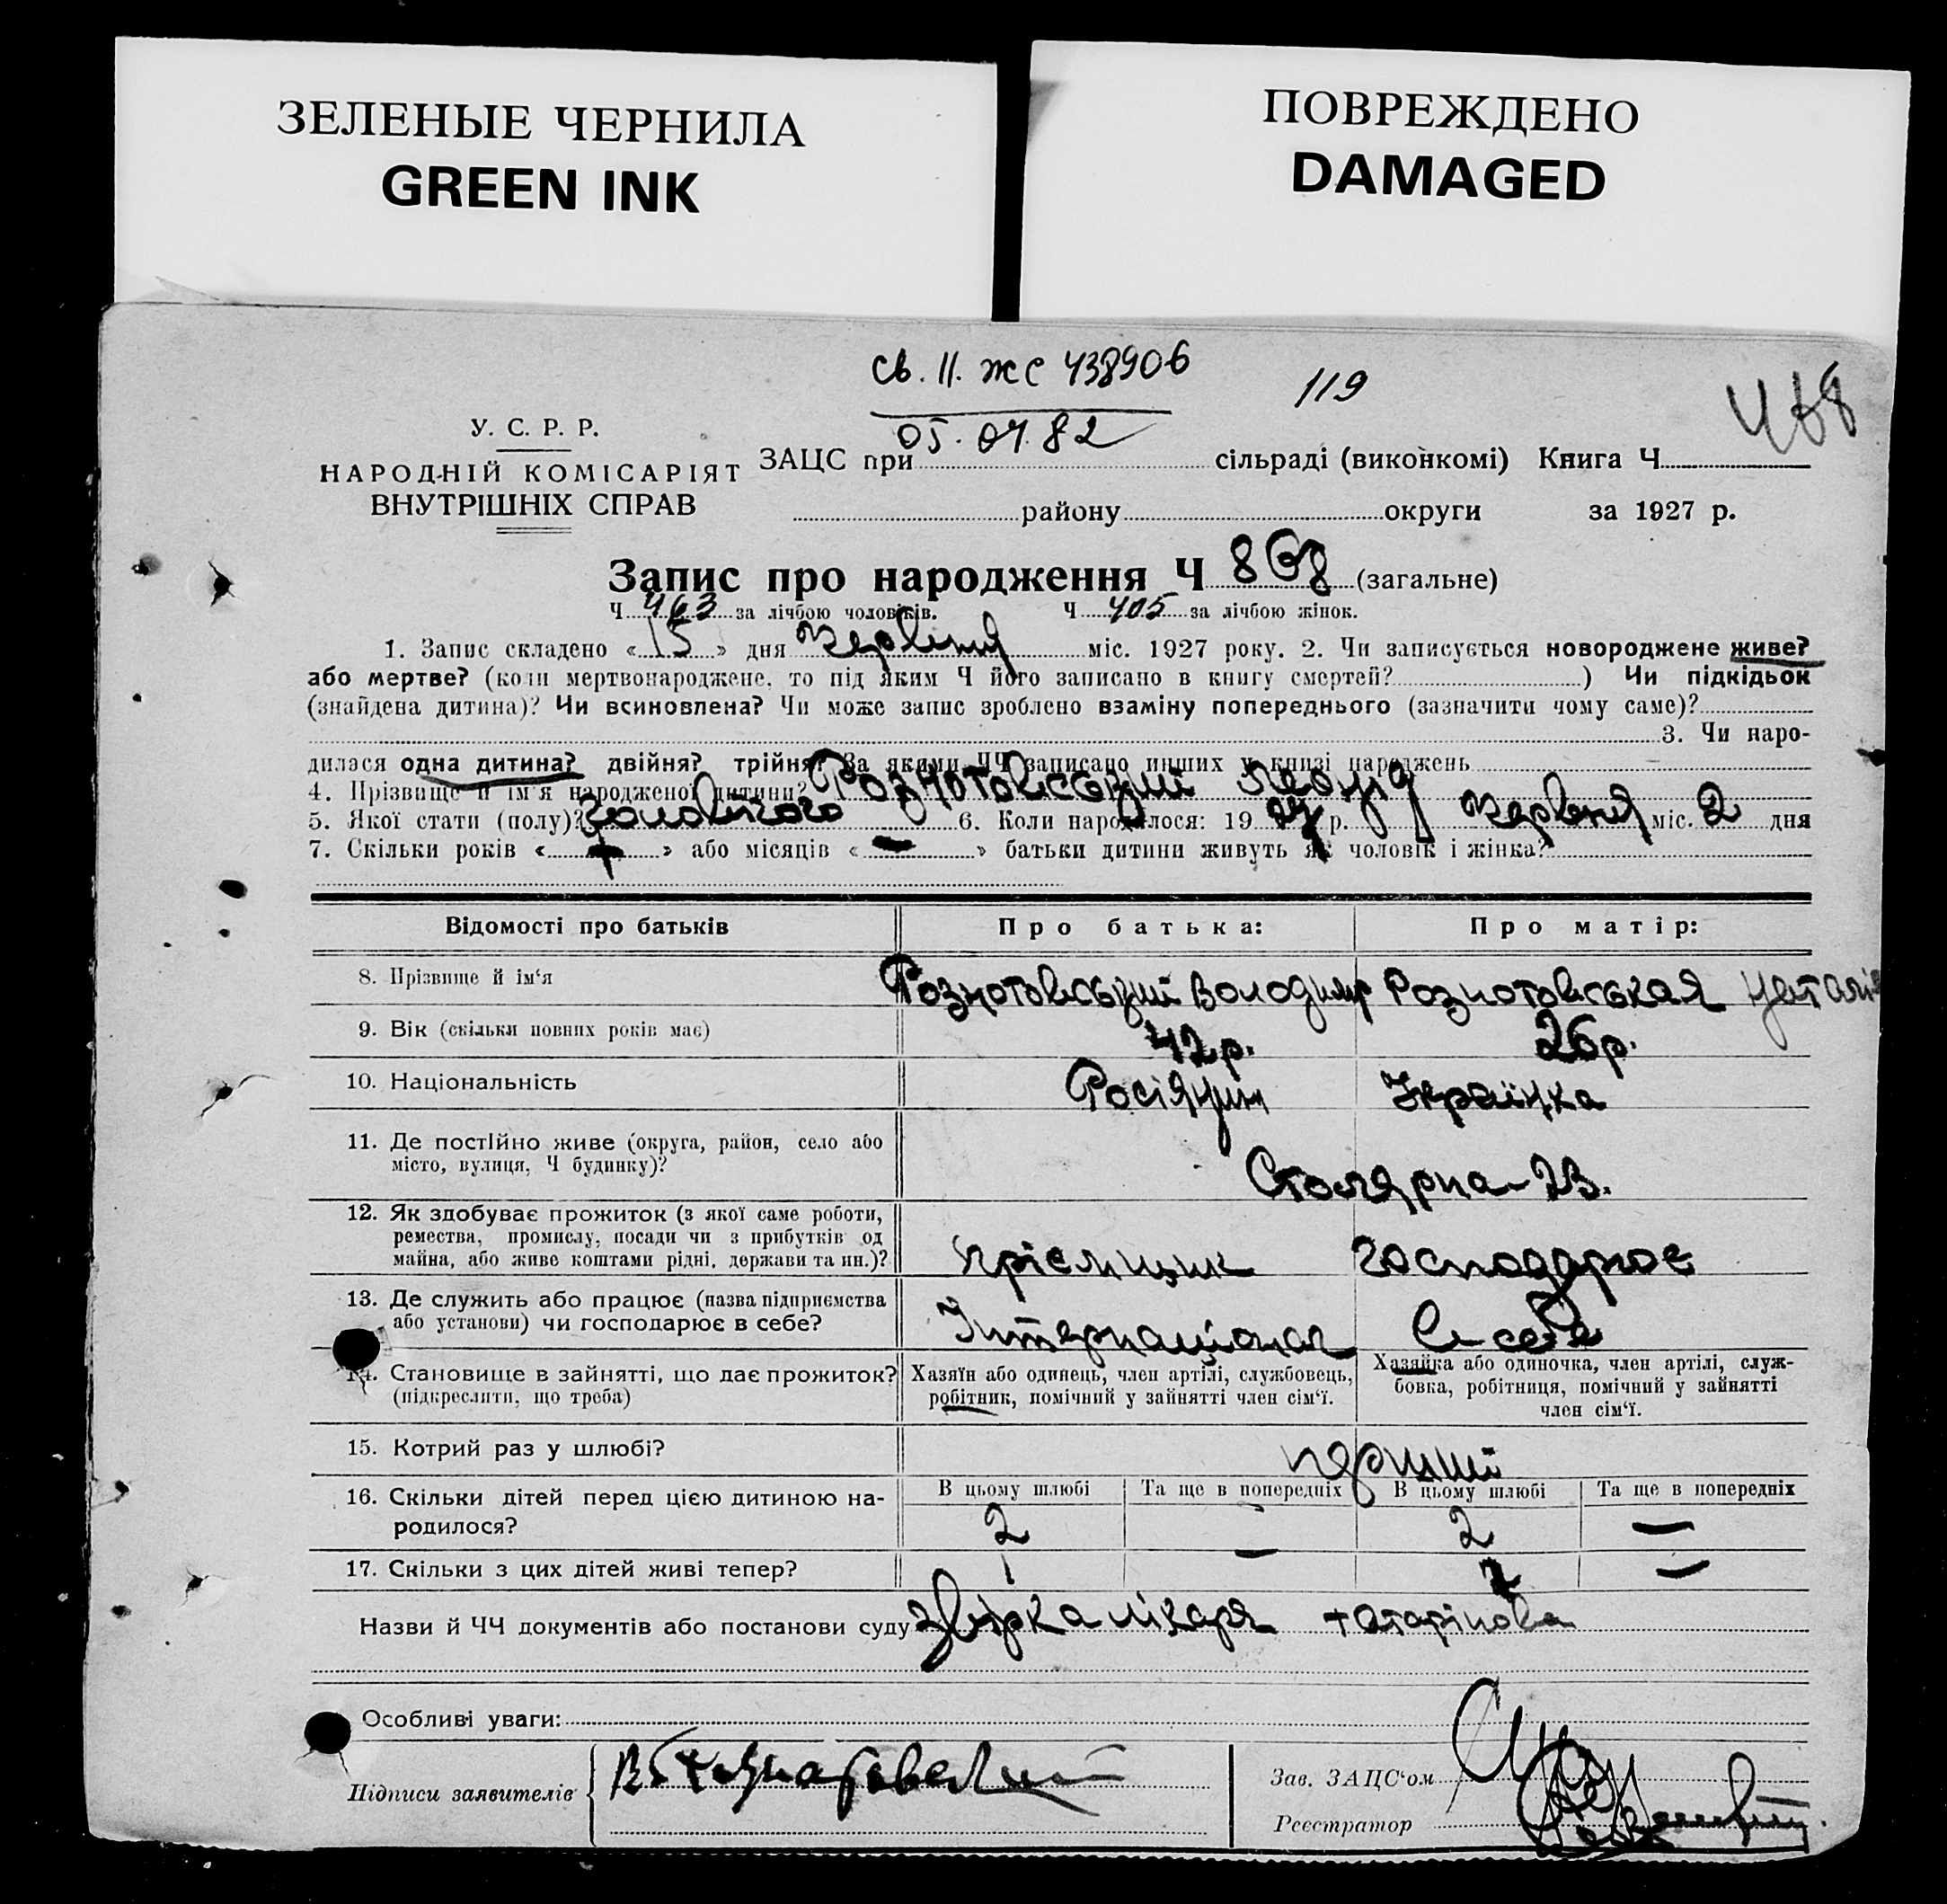 ЗЕЛЕНЫЕ ЧЕРНИЛА
GREEN INK
ПОВРЕЖДЕНО
DAMAGED
св. II. жс 438906
05.04.82
119
468
У. С. Р. Р.
НАРОДНІЙ КОМІСАРІЯТ
ВНУТРІШНІХ СПРАВ
ЗАЦС при сільраді (виконкомі) Книга Ч.
району округи за 1927 р.
Запис про народження Ч 868 (загальне)
Ч 463 за лічбою чоловіків. Ч 405 за лічбою жінок.
1. Запис складено « 15 » дня червня міс. 1927 року. 2. Чи записується новороджене живе?
або мертве? (коли мертвонароджене, то під яким Ч його записано в книгу смертей? ) Чи підкідьок
(знайдена дитина)? Чи всиновлена? Чи може запис зроблено взаміну попереднього (зазначити чому саме)?
3. Чи наро-
дилася одна дитина? двійня? трійня? За якими ЧЧ записано инших у книзі народжень
4. Прізвище й ім'я народженої дитини? Рознотовський Леонід
5. Якої стати (полу)? чоловічого 6. Коли народилося: 19 27 р. червня міс. 2 дня
7. Скільки років « » або місяців « — » батьки дитини живуть як чоловік і жінка?
Відомості про батьків
Про батька:
Про матір:
8. Прізвище й ім'я
Рознотовський Володимир
Рознотовськая Наталія
9. Вік (скільки повних років має)
42 р.
26 р.
10. Національність
Росіянин
Українка
11. Де постійно живе (округа, район, село або
місто, вулиця, Ч будинку)?
Столярна - 23.
12. Як здобуває прожиток (з якої саме роботи,
ремества, промислу, посади чи з прибутків од
майна, або живе коштами рідні, держави та ин.)?
приємщик
господарює
13. Де служить або працює (назва підприємства
або установи) чи господарює в себе?
Інтернаціонал
В себе
14. Становище в зайнятті, що дає прожиток?
(підкреслити, що треба)
Хазяїн або одинець, член артілі, службовець,
робітник, помічний у зайнятті член сім'ї.
Хазяйка або одиночка, член артілі, служ-
бовка, робітниця, помічний у зайнятті
член сім'ї.
15. Котрий раз у шлюбі?
перший
16. Скільки дітей перед цією дитиною на-
родилося?
В цьому шлюбі
Та ще в попередніх
В цьому шлюбі
Та ще в попередніх
2 — 2 —
17. Скільки з цих дітей живі тепер?
1 — —
Назви й ЧЧ документів або постанови суду довірка лікаря Татарінова
Особливі уваги:
Підписи заявителів
Зав. ЗАЦС'ом
Реєстратор